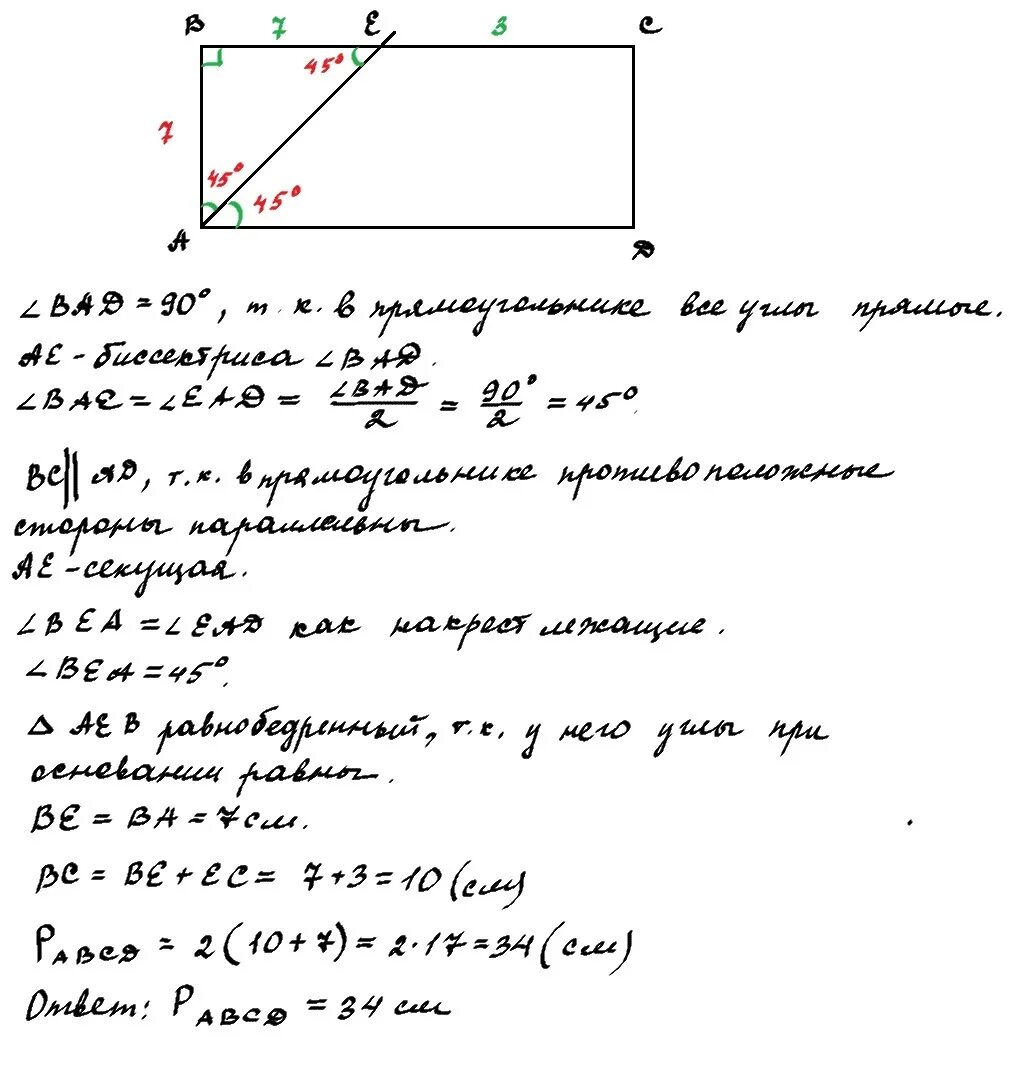 B 7 E 3 C
45°
7
45° 45°
A D
∠BAD = 90°, т. к. в прямоугольнике все углы прямые.
AE - биссектриса ∠BAD.
∠BAE = ∠EAD = ∠BAD/2 = 90°/2 = 45°.
BC || AD, т. к. в прямоугольнике противоположные
стороны параллельны.
AE - секущая.
∠BEA = ∠EAD как накрест лежащие.
∠BEA = 45°.
Δ AEB равнобедренный, т. к. у него углы при
основании равны.
BE = BA = 7 см.
BC = BE + EC = 7 + 3 = 10 (см)
P ABCD = 2 (10 + 7) = 2 · 17 = 34 (см)
Ответ: P ABCD = 34 см